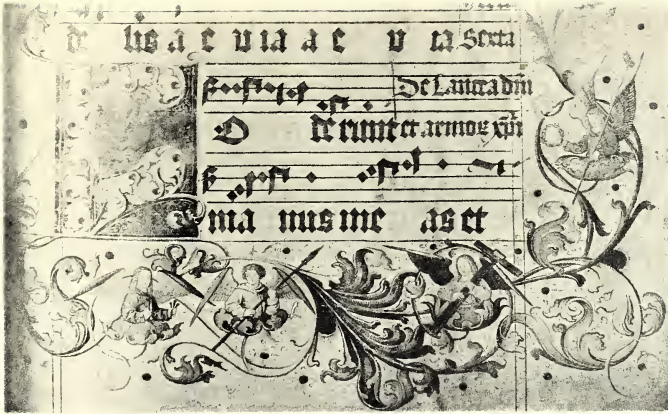 a e u ia a e u ia Sexta
De Lancea dm̄
O de runt et armos xp̄i
ma nus me as et